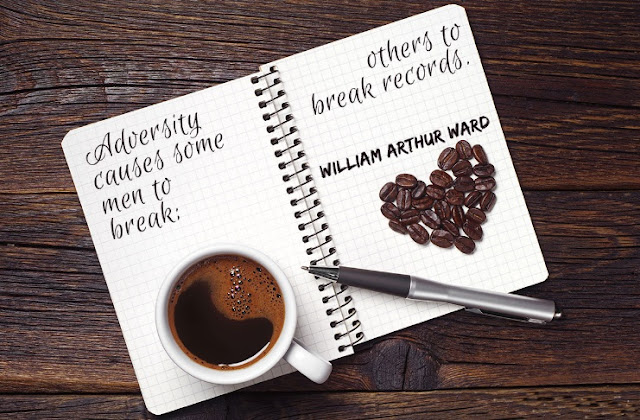 Adversity
causes some
men to
break;
others to
break records.
WILLIAM ARTHUR WARD